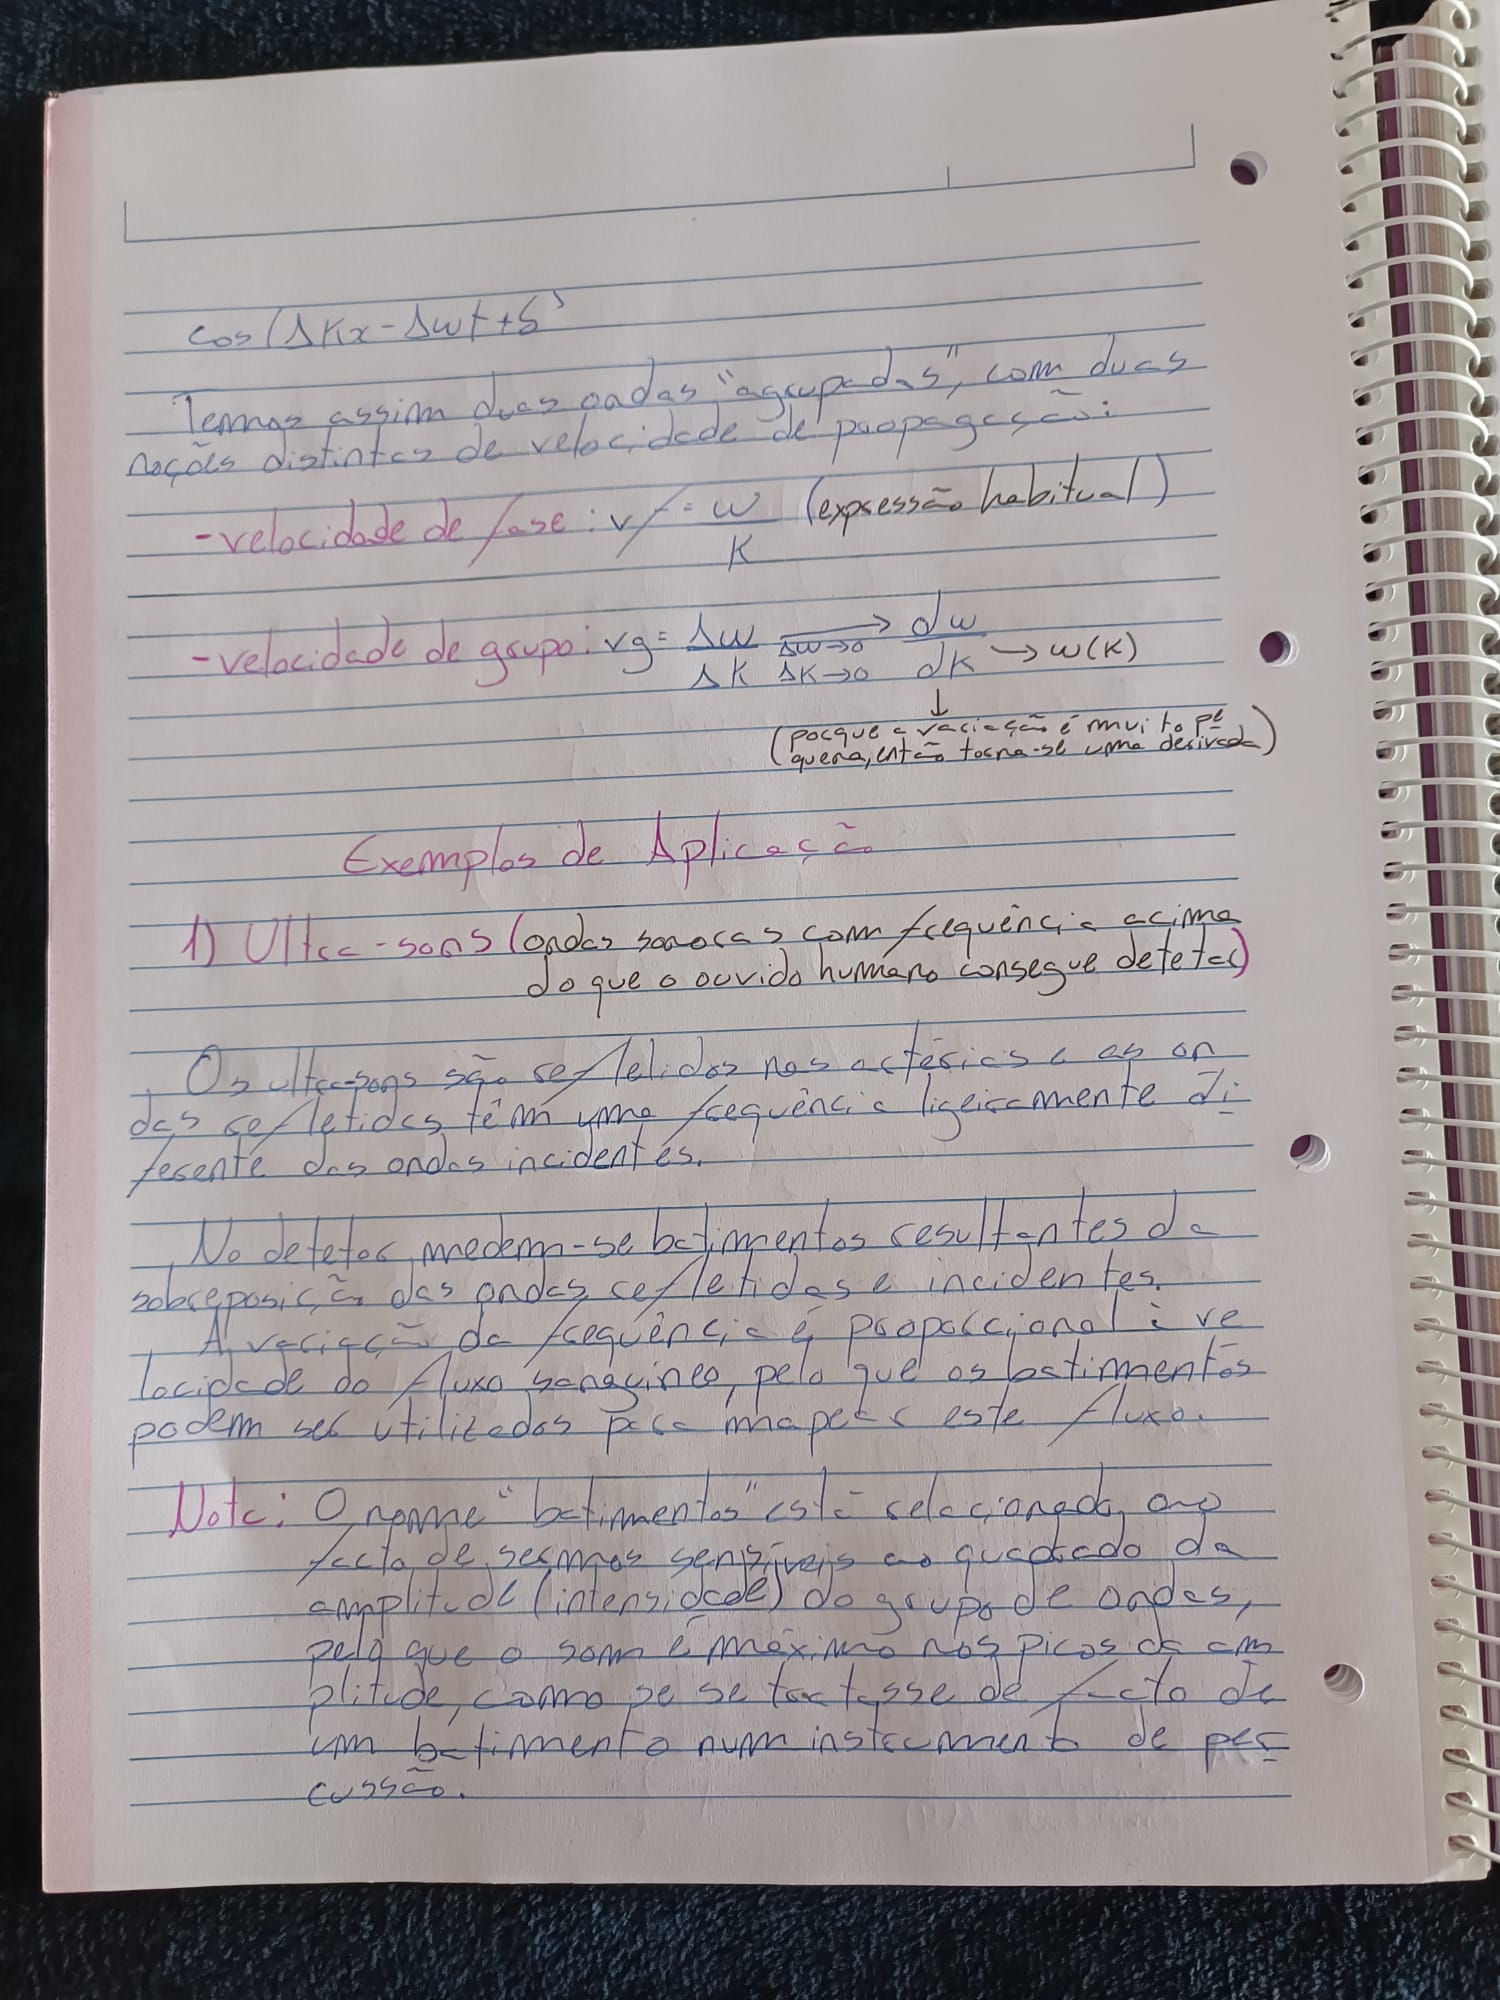 cos(ΔKx - Δwt + δ)
Temos assim duas ondas "agrupadas", com duas
noções distintas de velocidade de propagação:
- velocidade de fase: vf = w/K (expressão habitual)
- velocidade de grupo: vg = Δw/ΔK → (Δw→0 ΔK→0) dw/dK → w(K)
↓
(porque a variação é muito pe
quena, então torna-se uma derivada)
Exemplos de Aplicação
1) Ultra-sons (ondas sonoras com frequência acima
do que o ouvido humano consegue detetar)
Os ultra-sons são refletidos nas artérias e as on
das refletidas têm uma frequência ligeiramente di
ferente das ondas incidentes.
No detetor, medem-se batimentos resultantes da
sobreposição das ondas refletidas e incidentes.
A variação da frequência é proporcional à ve
locidade do fluxo sanguíneo, pelo que os batimentos
podem ser utilizados para mapear este fluxo.
Nota: O nome "batimentos" está relacionado ao
facto de sermos sensíveis ao quadrado da
amplitude (intensidade) do grupo de ondas,
pelo que o som é máximo nos picos da am
plitude, como se se tratasse de facto de
um batimento num instrumento de per
cussão.